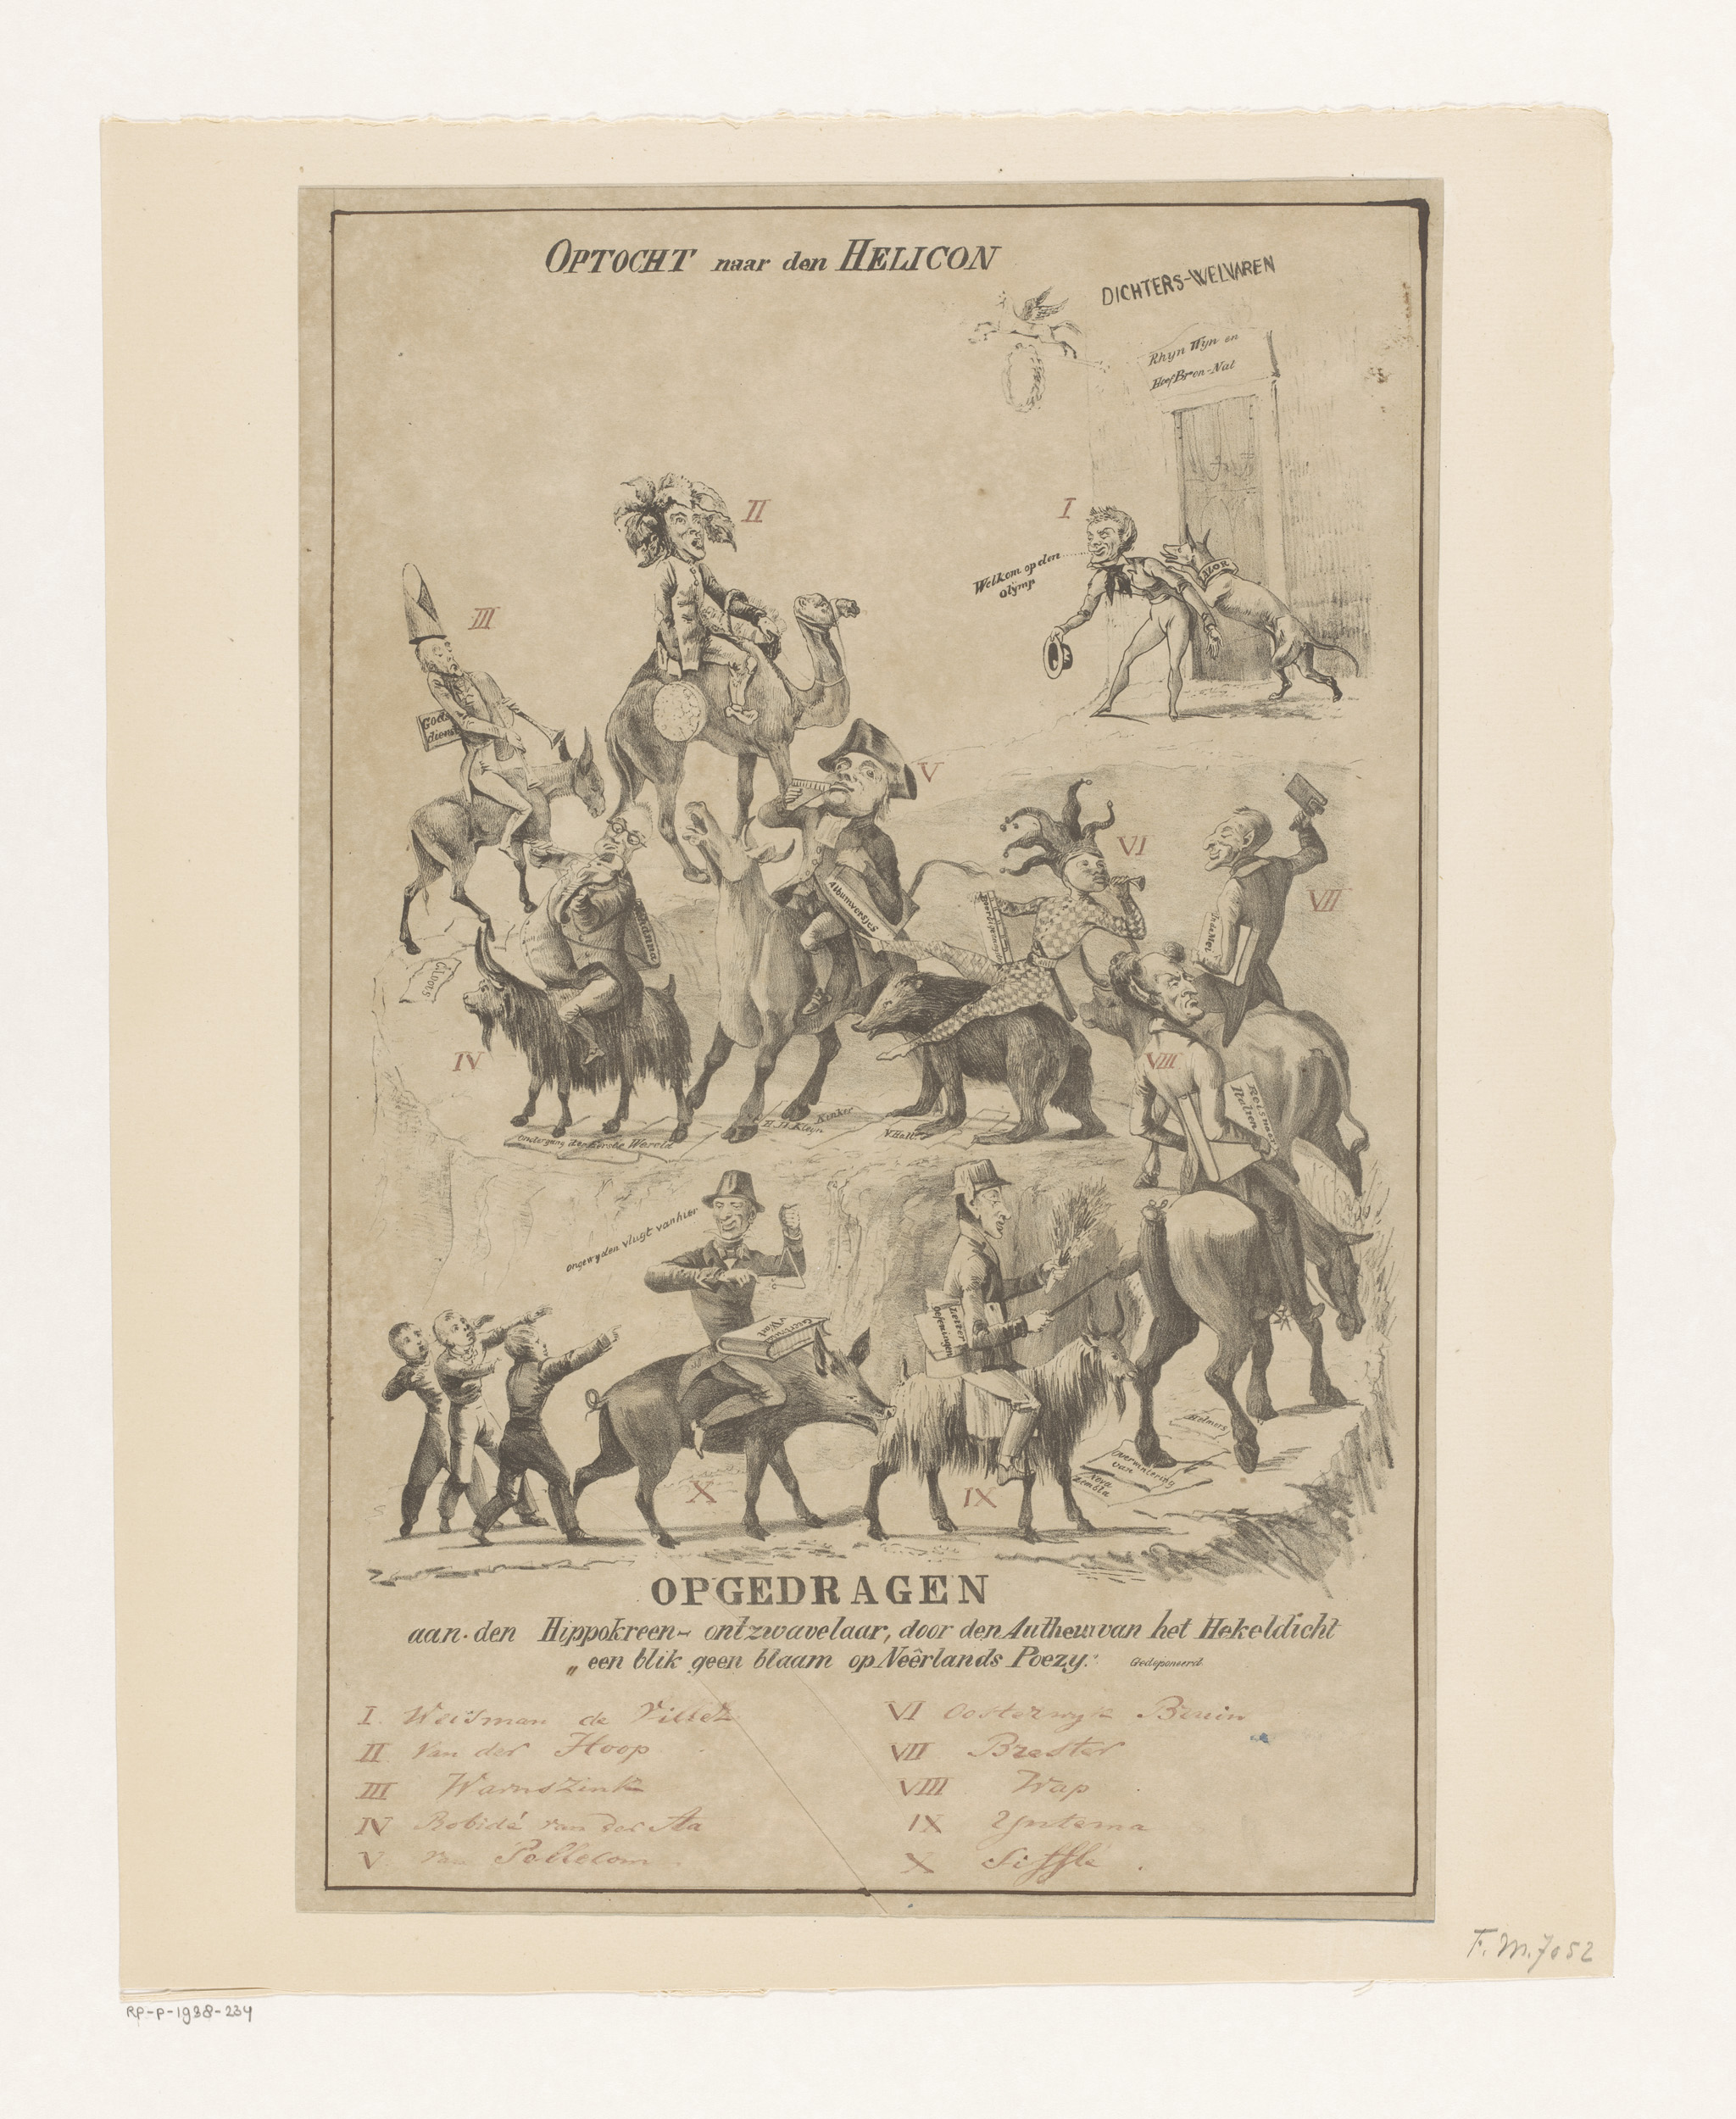 OPTOCHT naar den HELICON
DICHTERS-WELVAREN
Rhyn Wyn en
HoefBron-Nat
I
Welkom op den
Olymp
AZOR
II
III
Gods
dienst
V
Albumversjes
VI
VII
IV
Hosanna
CLOOTS
VIII
Reis naar
Italien
Ondergang der Eerste Wereld
H. H. Kleyn
Kinker
V. Hall
ongewyden vlugt van hier
Letter
oefeningen
Helmers
overwintering
van
Nova
Zembla
X
IX
OPGEDRAGEN
aan den Hippokreen- ontzwavelaar, door den Autheur van het Hekeldicht
„ een blik geen blaam op Neêrlands Poezy." Gedeponeerd.
I. Weisman de Villez
II Van der Hoop
III Warnszink
IV Robidé van der Aa
V van
VI Oosterwyk Bruin
VII Brester
VIII Wap
IX Yntema
X Sifflé
F. M. 7052
RP-P-1938-234